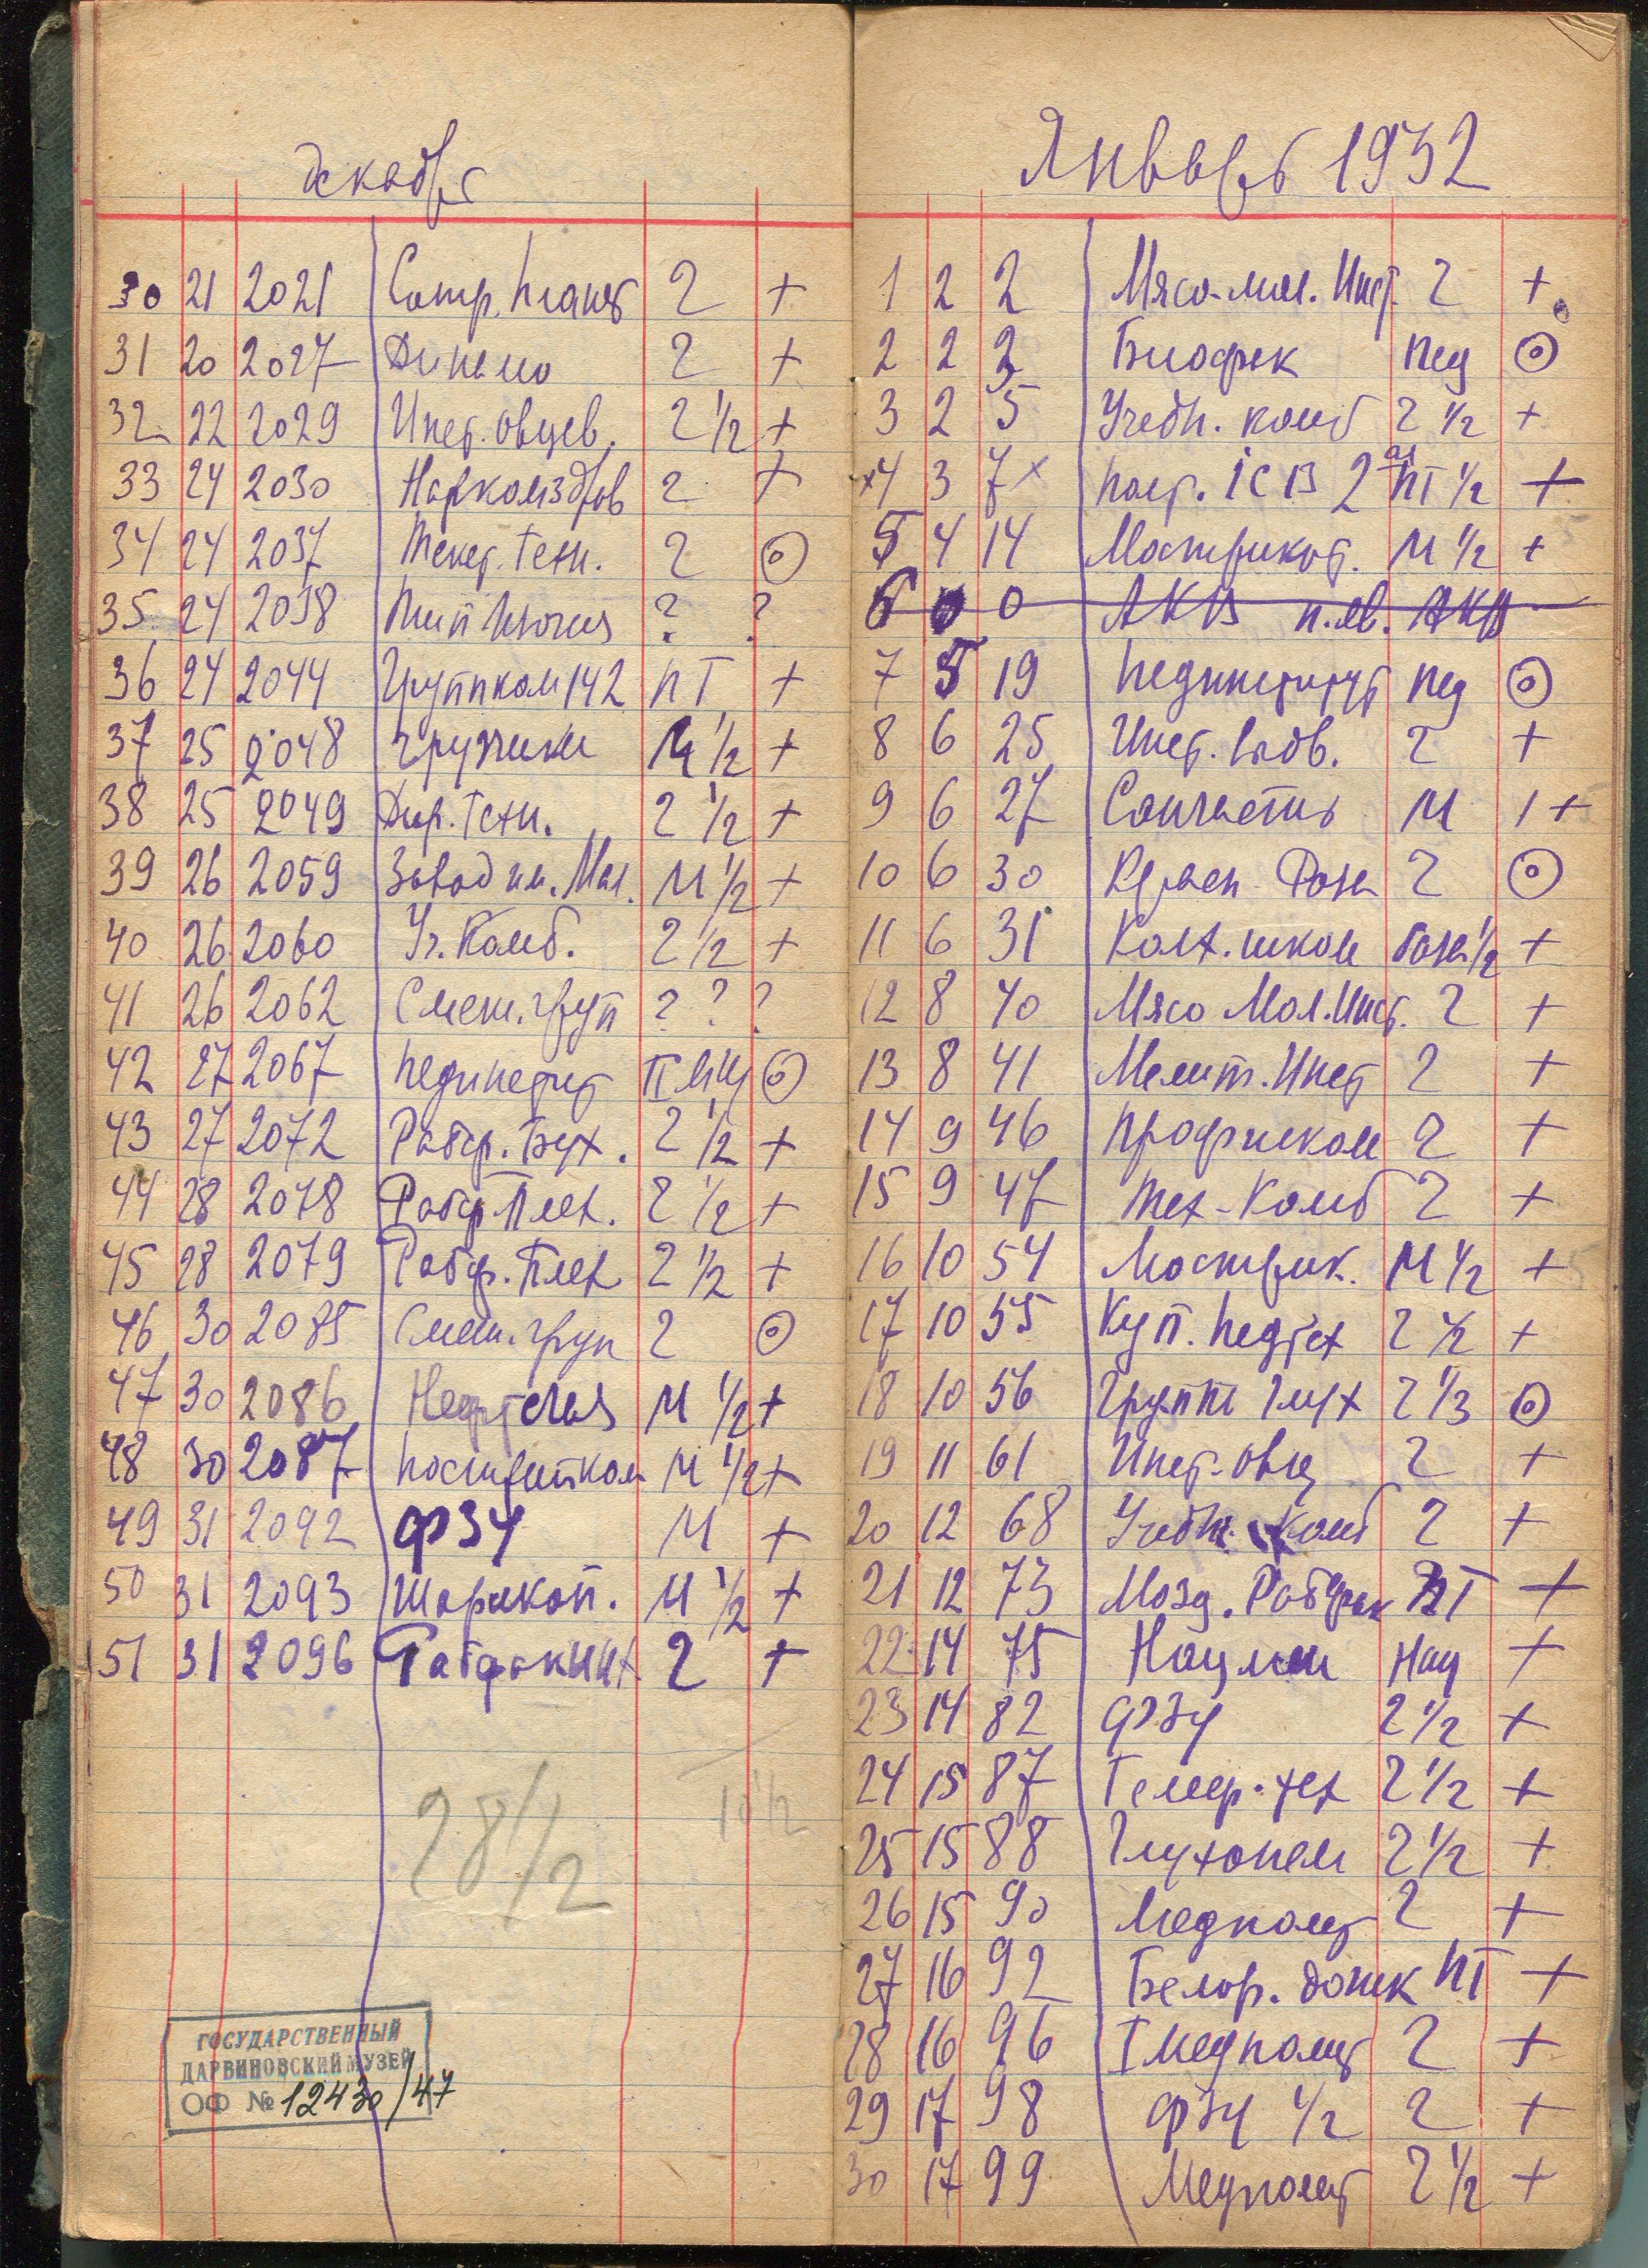 декабрь
30 21 2021 2 +
31 20 2027 Динамо 2 +
32 22 2029 Инст. овцев. 2 1/2 +
33 24 2030 Наркомздрав 2 +
34 24 2037 Текст. техн. 2 ⊙
35 24 2038 ? ?
36 24 2044 Группком 142 ПТ +
37 25 2048 Грузчики М 1/2 +
38 25 2049 Дир. Техн. 2 1/2 +
39 26 2059 Завод им. Мол. М 1/2 +
40 26 2060 Уч. Комб. 2 1/2 +
41 26 2062 Смеш. груп ? ? ?
42 27 2067 Пединстит ⊙
43 27 2072 Рабф. Бух. 2 1/2 +
44 28 2078 Рабф. Плех. 2 1/2 +
45 28 2079 Рабф. Плех 2 1/2 +
46 30 2085 Смеш. груп 2 ⊙
47 30 2086 М 1/2 +
48 30 2087 М 1/2 +
49 31 2092 ФЗУ М +
50 31 2093 Шарикоп. М 1/2 +
51 31 2096 2 +
28 1/2
10 1/2
ГОСУДАРСТВЕННЫЙ
ДАРВИНОВСКИЙ МУЗЕЙ
ОФ № 12430/47
Январь 1932
1 2 2 Мясо-мол. Инст. 2 +
2 2 3 Биофак Пед ⊙
3 2 5 Учебн. комб 2 1/2 +
×4 3 7× ПТ 1/2 +
5 4 14 Мострикот. М 1/2 +
6 0 0 АКВ н.яв. АКВ
7 5 19 Пединститут Пед ⊙
8 6 25 Инст. 2 +
9 6 27 Санчасть М 1 +
10 6 30 2 ⊙
11 6 31 Колх. школ 1/2 +
12 8 40 Мясо Мол. Инст. 2 +
13 8 41 Инст 2 +
14 9 46 Профшкол 2 +
15 9 47 Тех-Комб 2 +
16 10 54 Мострик. М 1/2 +
17 10 55 Куп. Педтех 2 1/2 +
18 10 56 Группа Глух 2 1/3 ⊙
19 11 61 Инст. Овц 2 +
20 12 68 Учебн. Комб 2 +
21 12 73 Рабфак ПТ +
22 14 75 Нацмен Нац +
23 14 82 ФЗУ 2 1/2 +
24 15 87 тех 2 1/2 +
25 15 88 Глухонем 2 1/2 +
26 15 90 Медполит 2 +
27 16 92 Белор. ПТ +
28 16 96 I Медполит 2 +
29 17 98 ФЗУ 1/2 2 +
30 17 99 Медполит 2 1/2 +